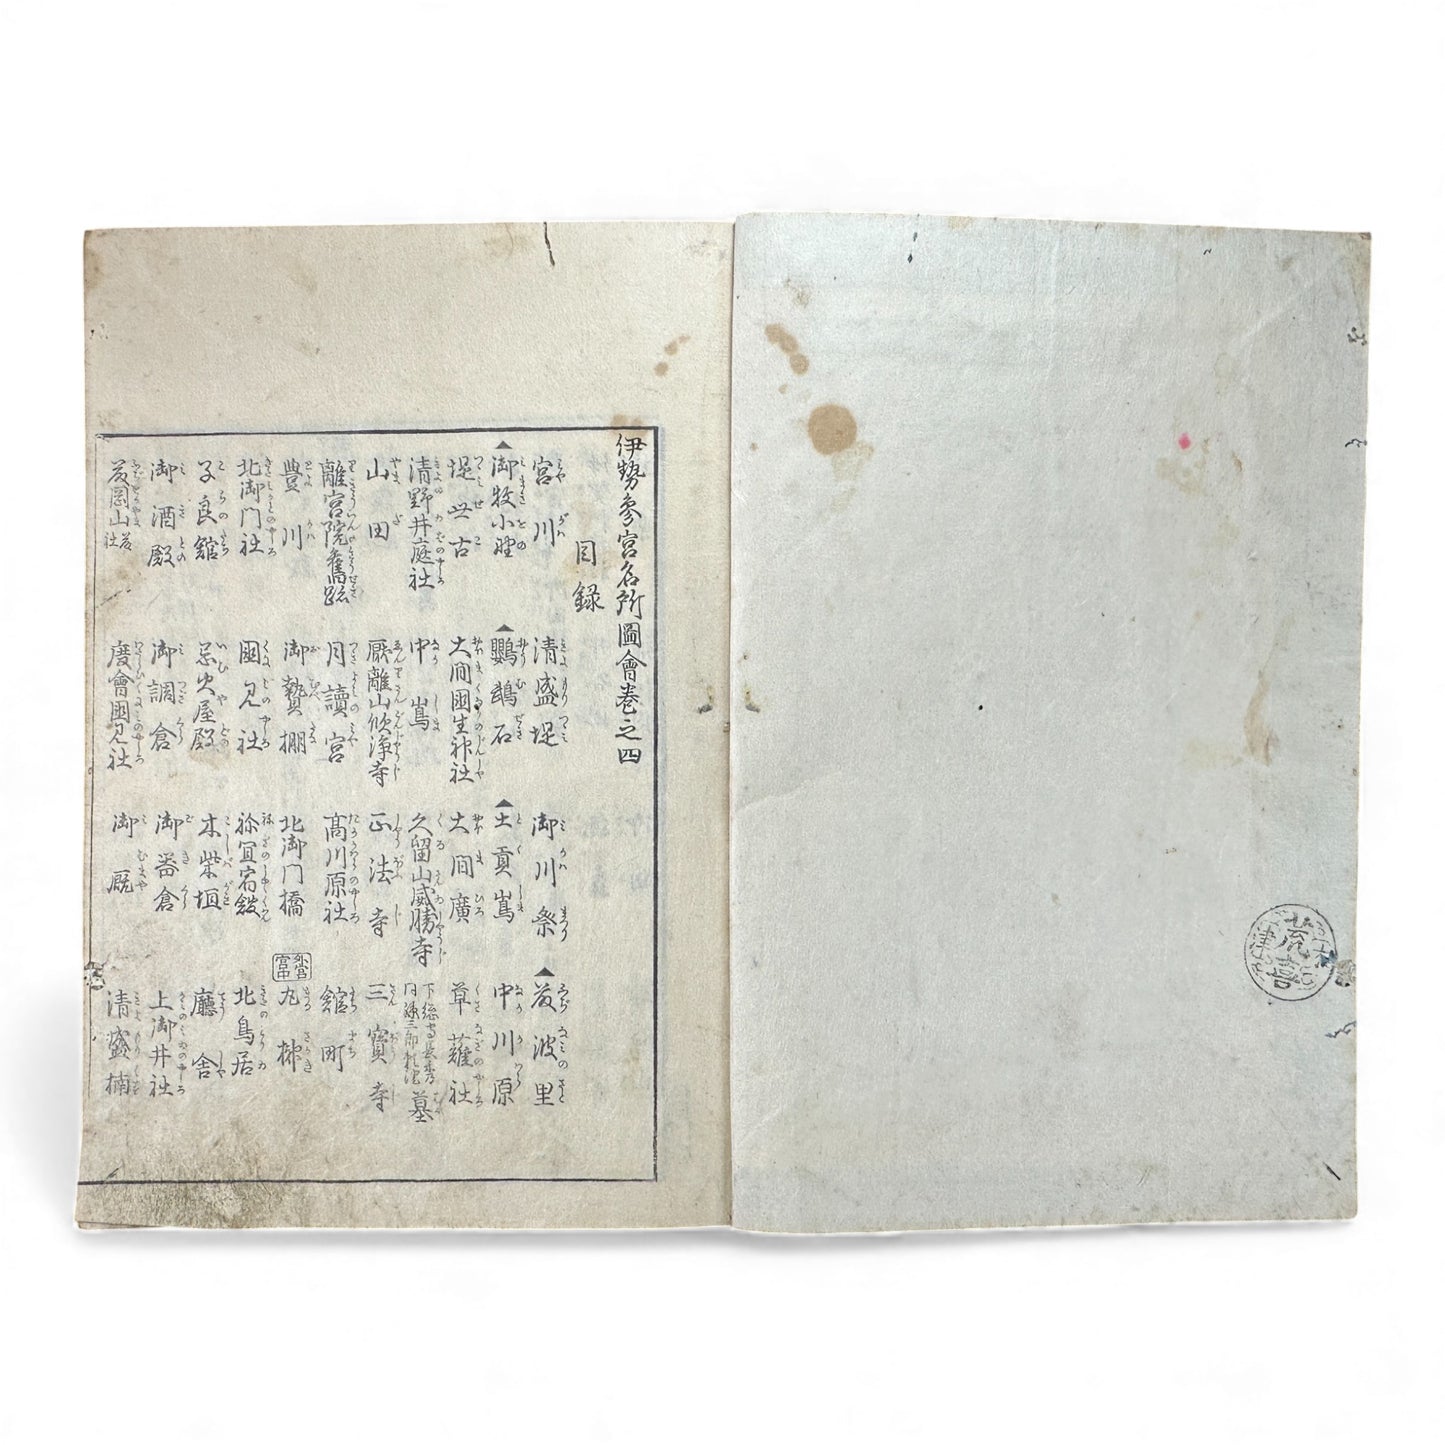 伊勢參宮名所圖會巻之四
目錄
宮川 清盛堤 御川祭 藤波里
御牧小野 鸚鵡石 土貢嶌 中川原
堤世古 大間國生神社 大間廣 草薙社
清野井庭社 中嶌 久留山威勝寺 墓
山田 厭離山欣浄寺 正法寺 三寳寺
離宮院舊跡 月讀宮 髙川原社 館町
豊川 御贄棚 北御門橋 外宮宮中 九
北御門社 國見社 祢宜宿舘 北鳥居
子良館 忌火屋殿 木柴垣 廳舎
御酒殿 御調倉 御器倉 上御井社
藤岡山社 度會國見社 御厩 清盛楠